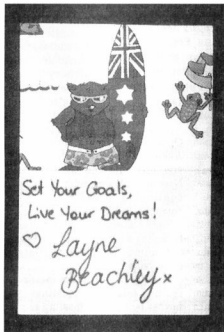 Set Your Goals,
Live Your Dreams!
♡ Layne
Beachley x